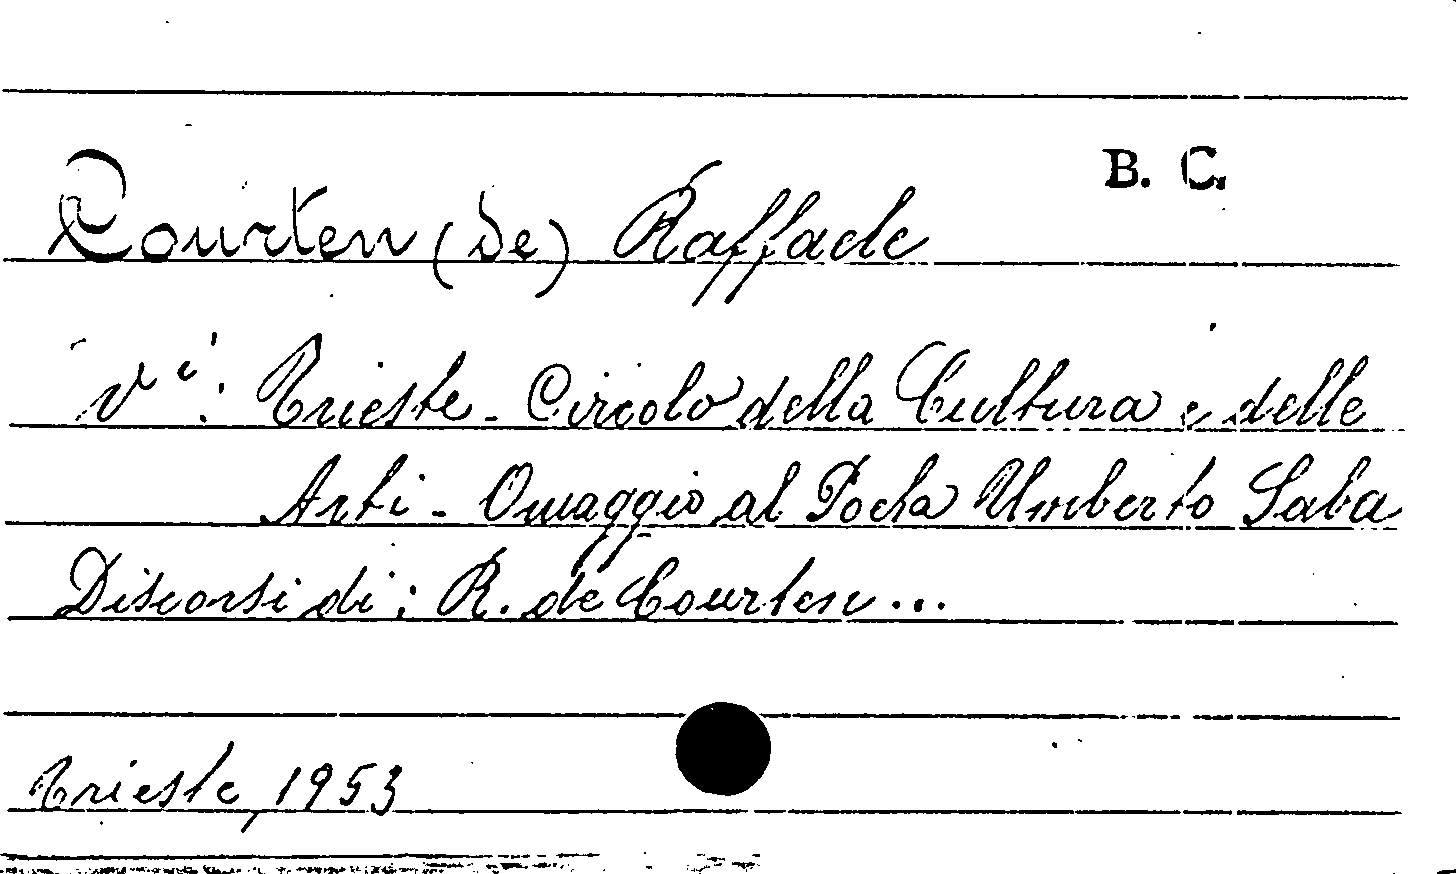 B. C.
Courten (de) Raffaele
Vei: Trieste - Circolo della Cultura e delle
Arti - Omaggio al Poeta Umberto Saba
Discorsi di: R. de Courten...
Trieste, 1953